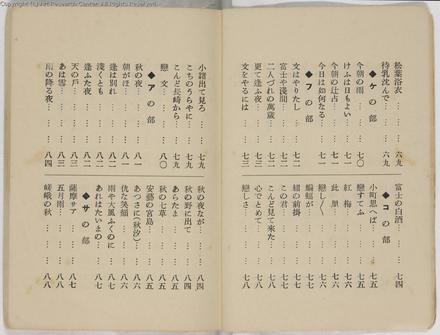 © Ritsumeikan Art Research Center. All rights reserved.
松葉浴衣……六九
待乳沈んで……六九
◆ケの部
今朝の雨……七〇
けふは日もよい……七一
今朝の辻占……七一
今日は如何なる……七一
◆フの部
文はやりたし……七二
二人づれの萬歳……七二
富士や淺間……七二
更て逢ふ夜……七三
文をやるには……七三
富士の白酒……七四
◆コの部
小町思へば……七五
戀すてふ……七五
紅梅……七六
此里……七六
戀し〳〵……七六
蝙蝠が……七六
の前掛……七七
こんど見て來た……七七
この君……七七
心でとめて……七八
戀しさ……七八
小諸出て見ろ……七九
こちのうらやに……七九
こんど長崎から……七九
戀文……八〇
◆アの部
秋の夜……八一
朝がほ……八一
逢は別れ……八一
淺くとも……八二
逢ふた夜……八二
天の戸……八三
あは雪……八三
雨の降る夜……八四
秋の夜なが……八四
秋の野に出て……八四
あらたま……八五
秋の七草……八五
安藝の宮島……八五
あつさに(秋汐)……八六
仇な笑顔……八六
雨や大風ふくのに……八六
あれはたいまの……八七
◆サの部
薩摩サア……八七
五月雨……八八
嵯峨の秋……八八